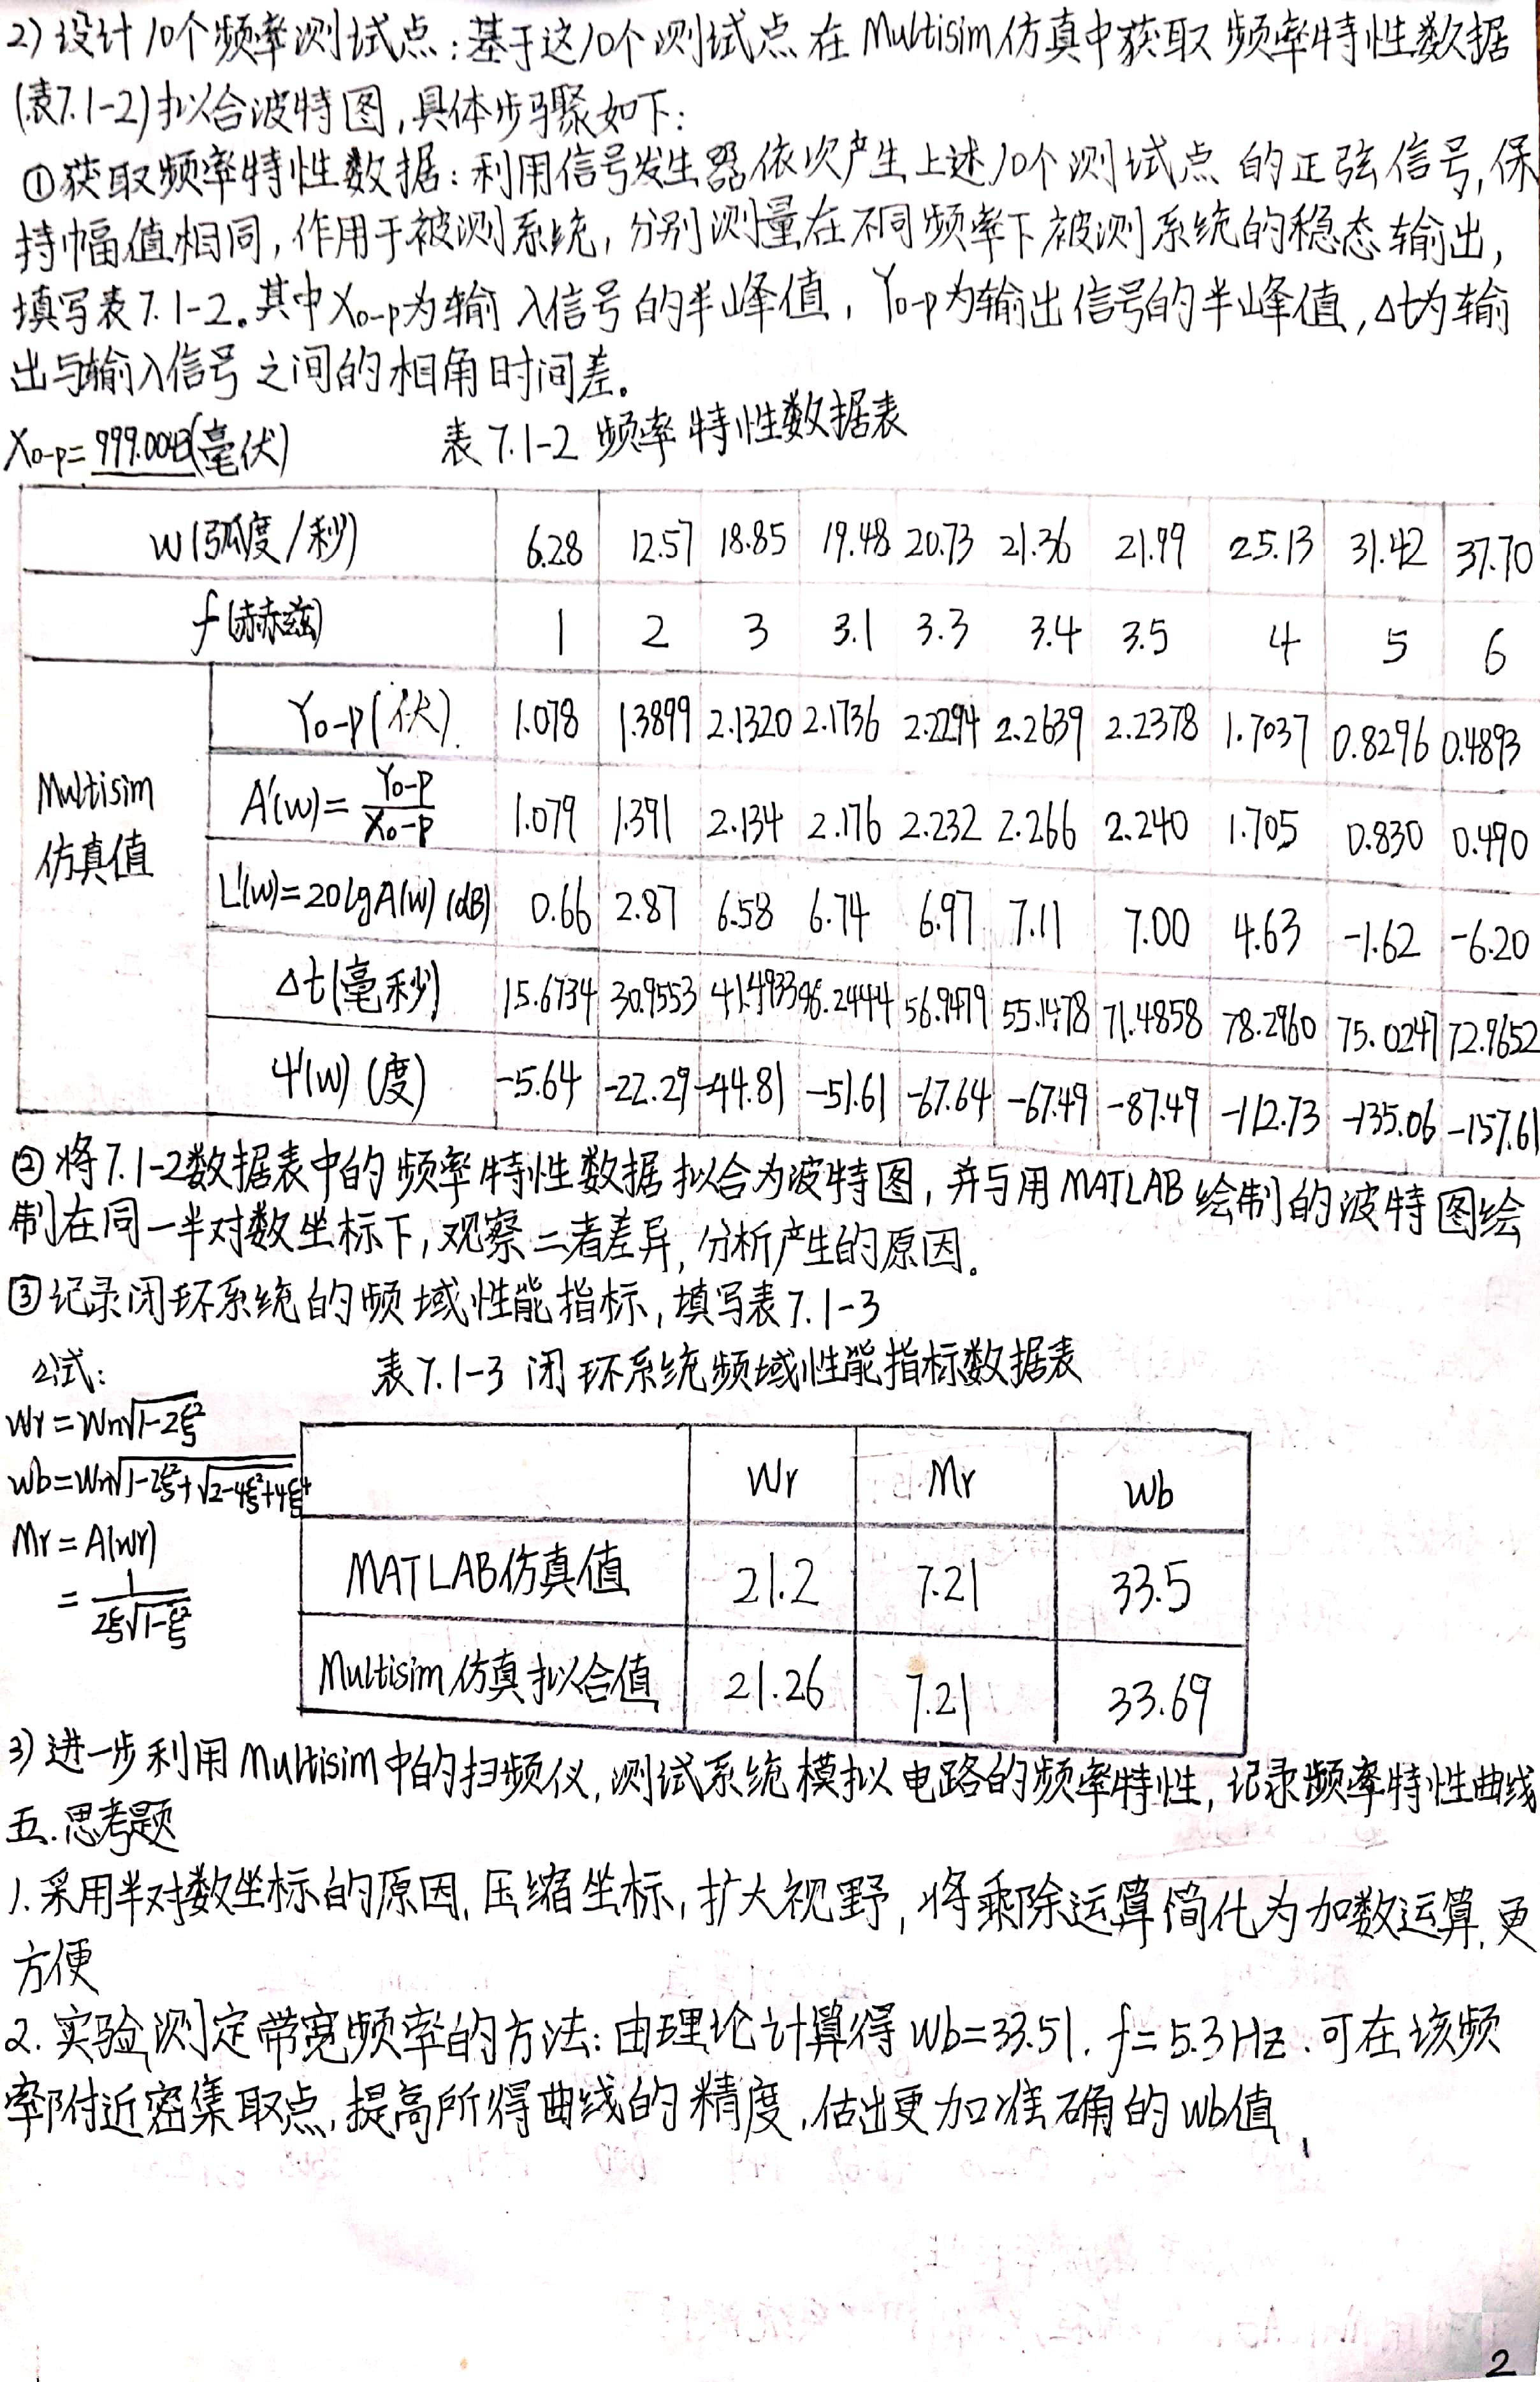 2) 设计10个频率测试点:基于这10个测试点在Multisim仿真中获取频率特性数据
(表7.1-2)拟合波特图,具体步骤如下:
①获取频率特性数据:利用信号发生器依次产生上述10个测试点的正弦信号,保
持幅值相同,作用于被测系统,分别测量在不同频率下被测系统的稳态输出,
填写表7.1-2。其中X0-p为输入信号的半峰值,Y0-p为输出信号的半峰值,Δt为输
出与输入信号之间的相角时间差。
X0-p= (毫伏) 表7.1-2 频率特性数据表
W(弧度/秒) 6.28 12.57 18.85 19.48 20.73 21.36 21.99 25.13 31.42 37.70
f(赫兹) 1 2 3 3.1 3.3 3.4 3.5 4 5 6
Y0-p(伏) 1.078 1.3899 2.1320 2.1736 2.2294 2.2639 2.2378 1.7037 0.8296 0.4893
Multisim仿真值 A'(W)=Y0-p/X0-p 1.079 1.391 2.134 2.176 2.232 2.266 2.240 1.705 0.830 0.490
L'(W)=20lgA(W) (dB) 0.66 2.87 6.58 6.74 6.97 7.11 7.00 4.63 -1.62 -6.20
Δt(毫秒) 15.6734 30.9553 41.4933 46.2444 56.9479 55.1478 71.4858 78.2960 75.0247 72.9652
Ψ'(W) (度) -5.64 -22.29 -44.81 -51.61 -67.64 -67.49 -87.49 -112.73 -135.06 -157.61
②将7.1-2数据表中的频率特性数据拟合为波特图,并与用MATLAB绘制的波特图绘
制在同一半对数坐标下,观察二者差异,分析产生的原因。
③记录闭环系统的频域性能指标,填写表7.1-3
公式: 表7.1-3 闭环系统频域性能指标数据表
Wr=Wn√1-2ξ²
Wb=Wn√1-2ξ²+√2-4ξ²+4ξ⁴
Mr=A(Wr)
=1/2ξ√1-ξ²
Wr Mr Wb
MATLAB仿真值 21.2 7.21 33.5
Multisim仿真拟合值 21.26 7.21 33.69
3) 进一步利用Multisim中的扫频仪,测试系统模拟电路的频率特性,记录频率特性曲线
五.思考题
1.采用半对数坐标的原因,压缩坐标,扩大视野,将乘除运算简化为加数运算,更
方便
2.实验测定带宽频率的方法:由理论计算得Wb=33.51.f=5.3Hz.可在该频
率附近密集取点,提高所得曲线的精度,估出更加准确的Wb值
2